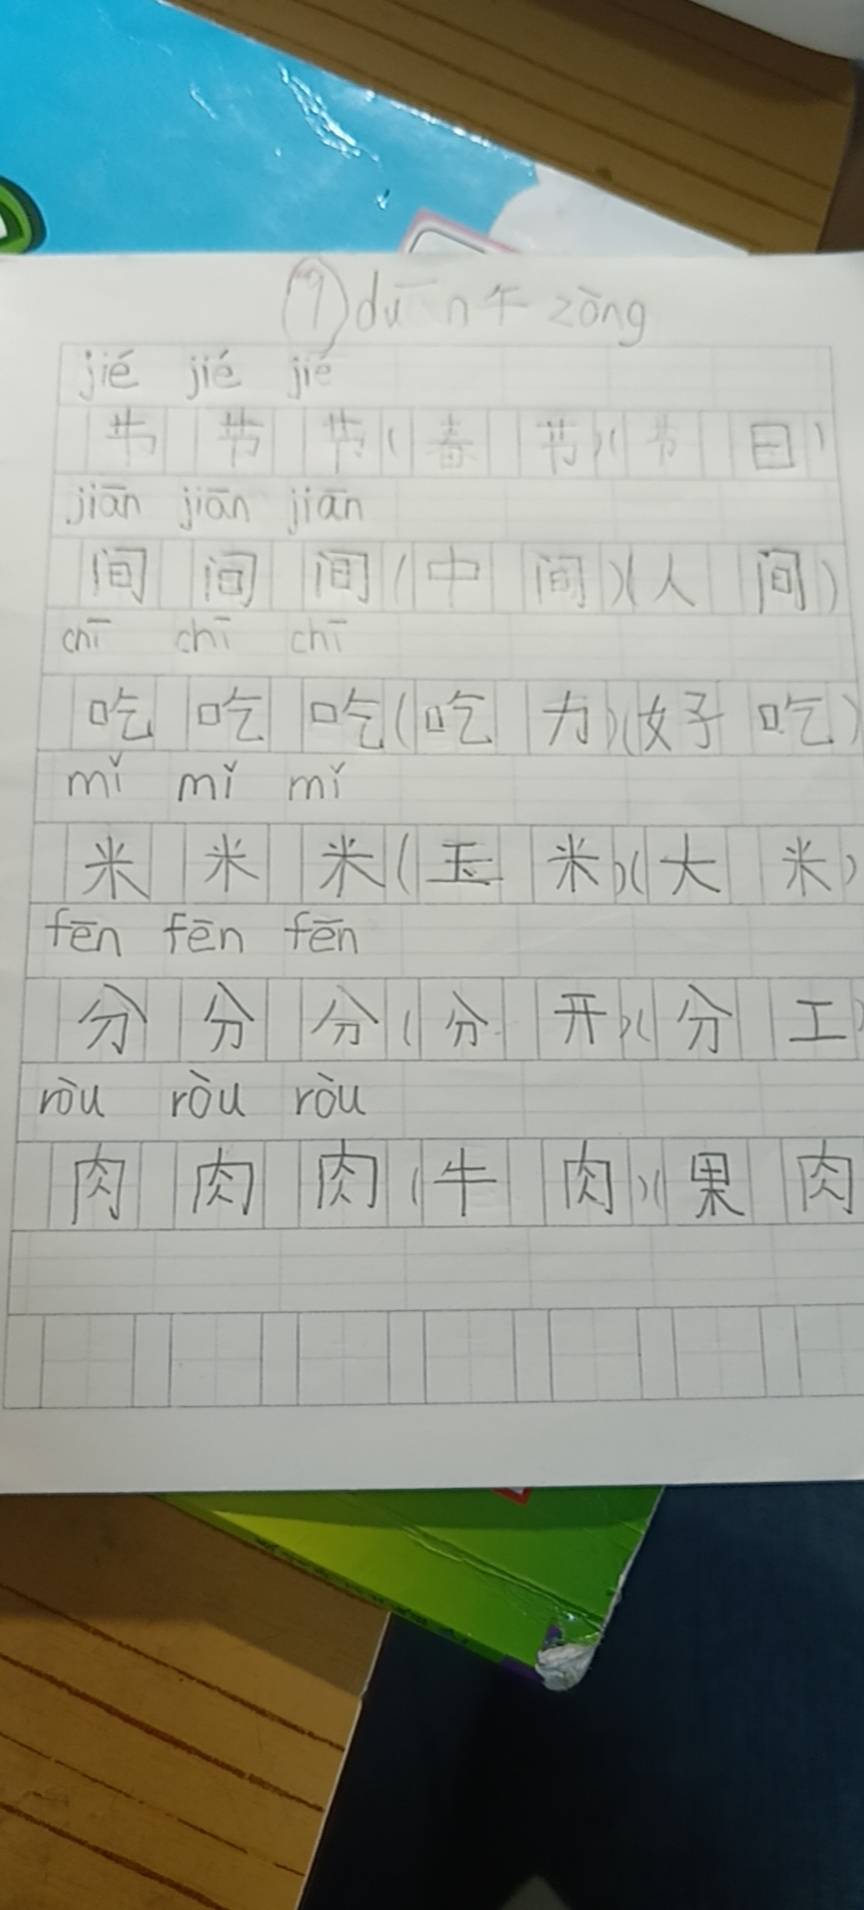 ⑨ duān午 zòng
jié jié jié
节 节 节 (春 节)(节 目)
jiān jiān jiān
间 间 间 (中 间)(人 间)
chī chī chī
吃 吃 吃 (吃 力)(好 吃)
mǐ mǐ mǐ
米 米 米 (玉 米)(大 米)
fēn fēn fēn
分 分 分 (分 开)(分 工)
ròu ròu ròu
肉 肉 肉 (牛 肉)(果 肉